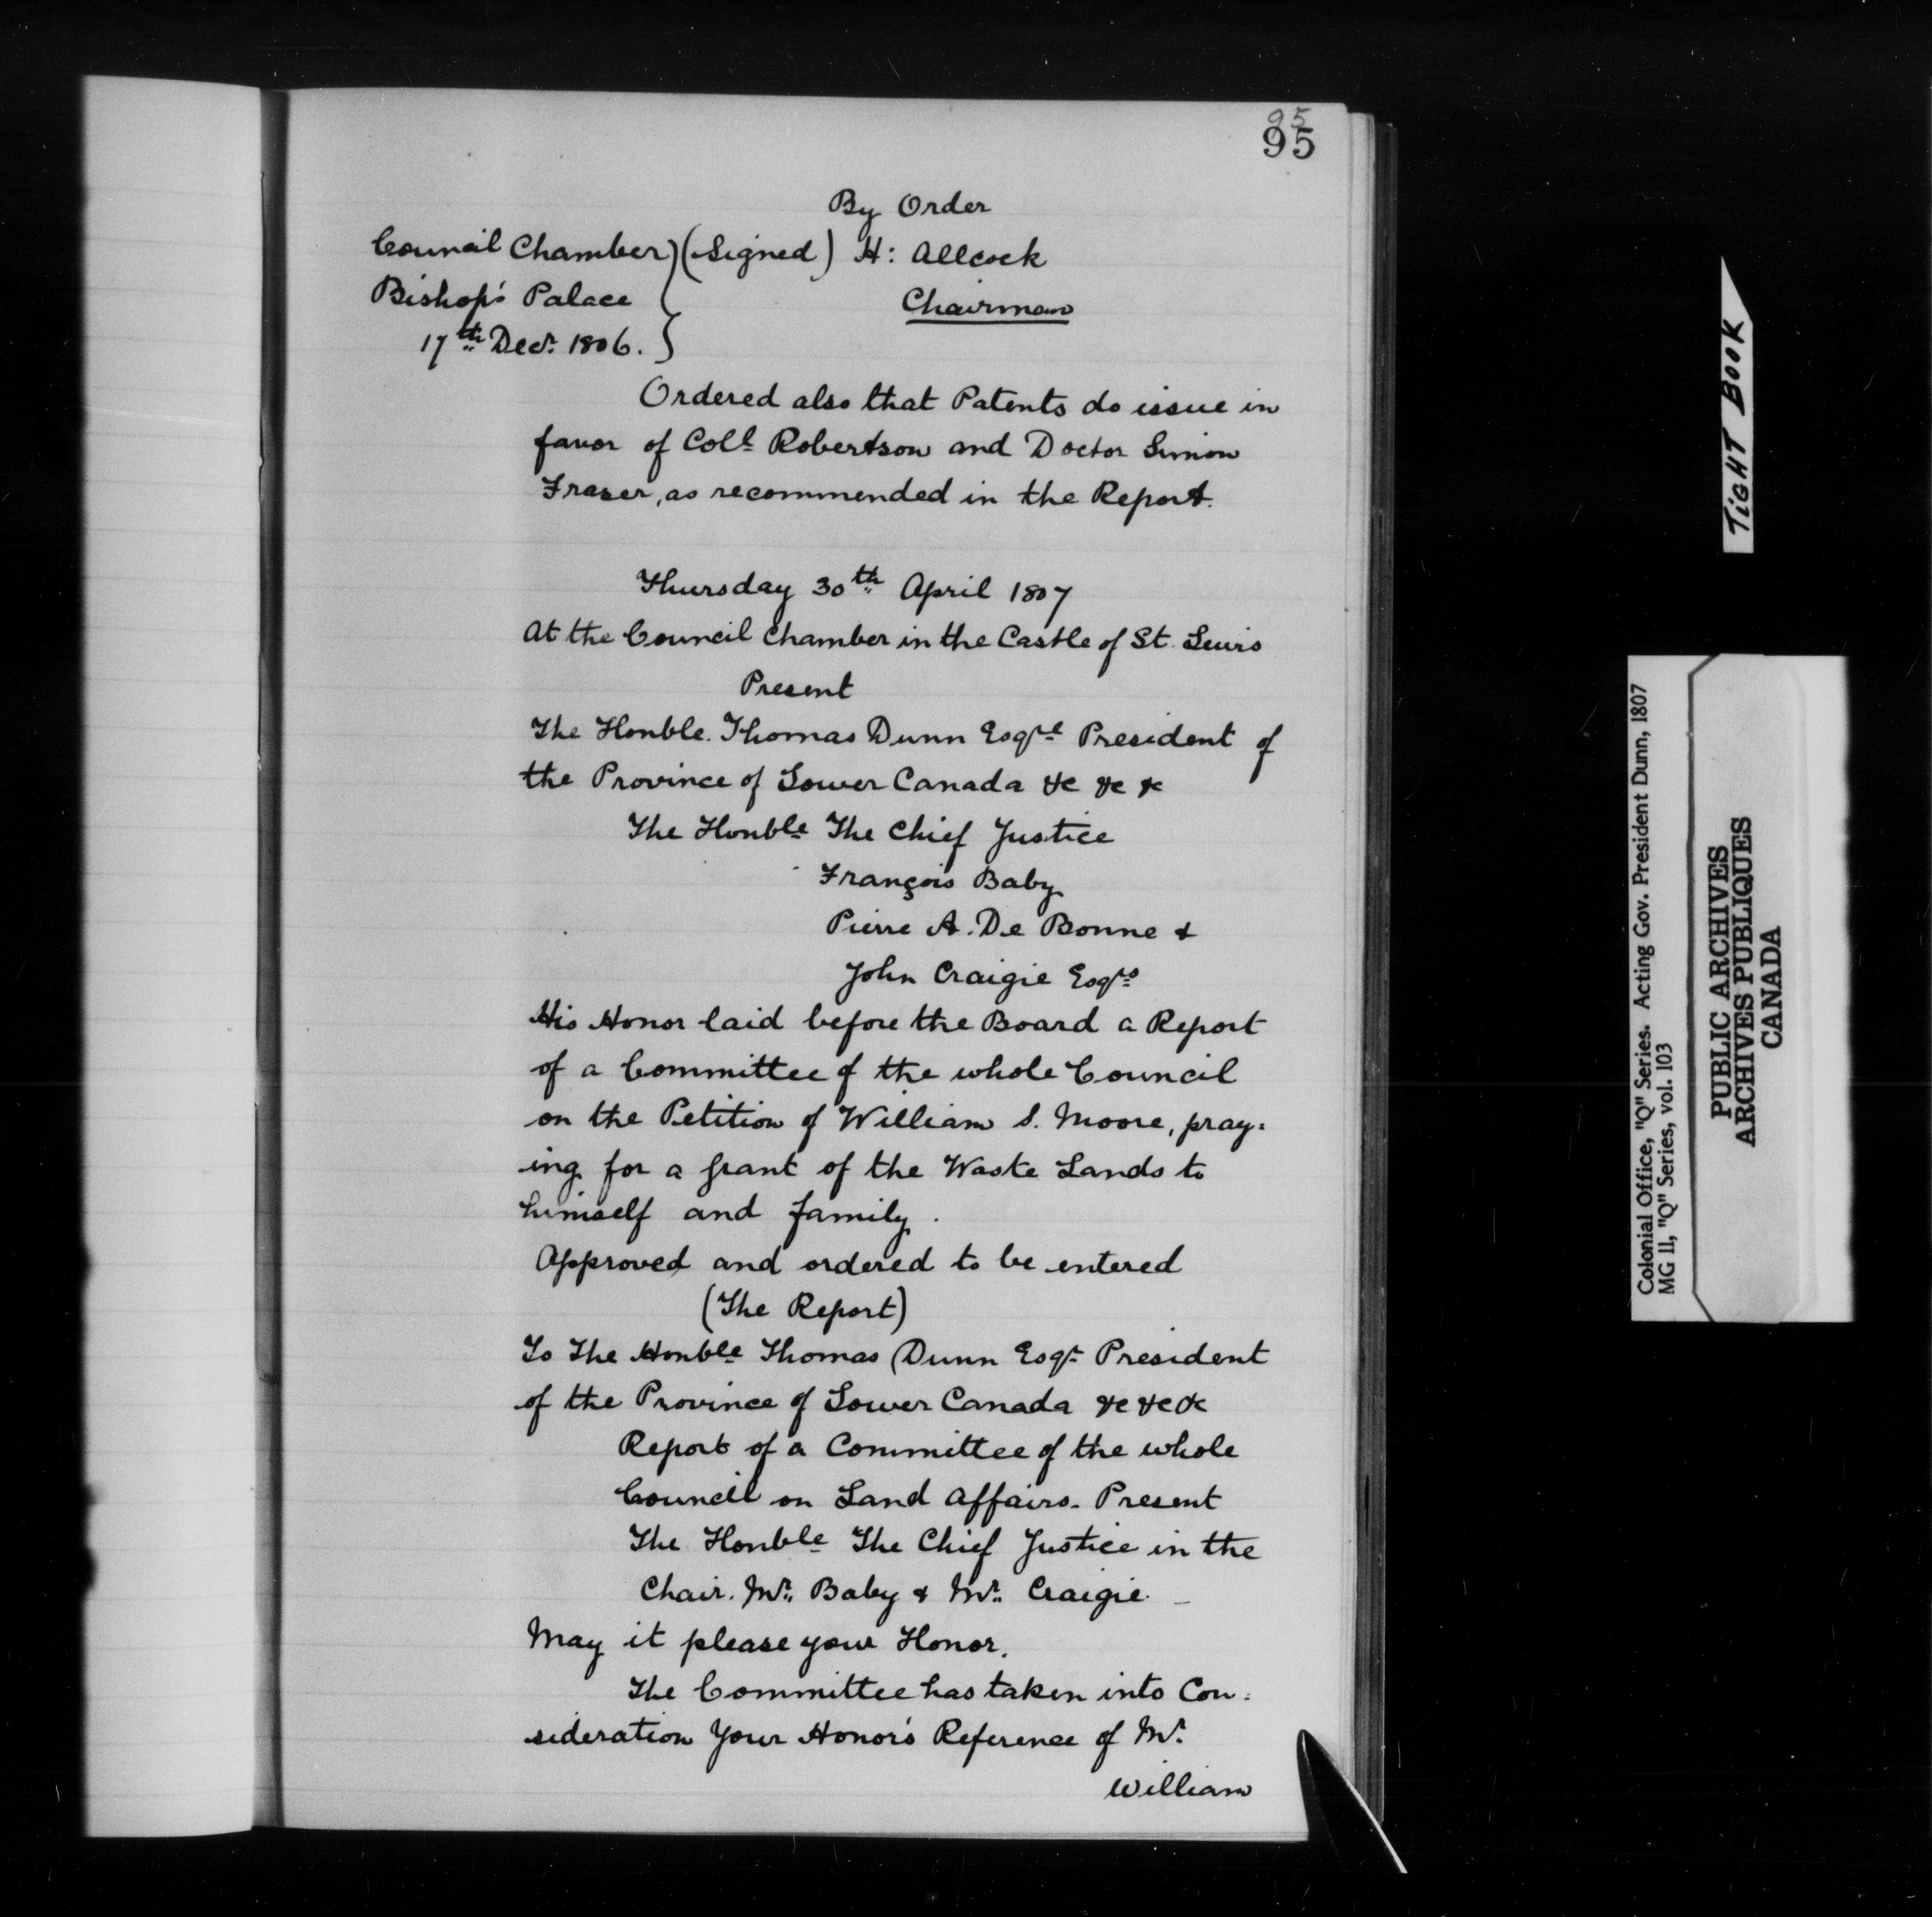 95
95
By Order
Council Chamber) (Signed) H: Allcock
Bishop's Palace { Chairman
17th Decr. 1806. }
Ordered also that Patents do issue in
favor of Coll. Robertson and Doctor Simon
Fraser, as recommended in the Report.
Thursday 30th April 1807
At the Council Chamber in the Castle of St. Lewis
Present
The Honble. Thomas Dunn Esqre President of
the Province of Lower Canada &c &c &c
The Honble The Chief Justice
François Baby
Pierre A. De Bonne &
John Craigie Esqrs
His Honor laid before the Board a Report
of a Committee of the whole Council
on the Petition of William S. Moore, pray=
ing for a grant of the Waste Lands to
himself and family.
Approved and ordered to be entered
(The Report)
To The Honble Thomas Dunn Esqr President
of the Province of Lower Canada &c &c &c
Report of a Committee of the whole
Council on Land Affairs. Present
The Honble The Chief Justice in the
Chair. Mr. Baby & Mr. Craigie. _
May it please your Honor.
The Committee has taken into Con=
sideration Your Honor's Reference of Mr.
William
TIGHT BOOK
Colonial Office, "Q" Series. Acting Gov. President Dunn, 1807
MG 11, "Q" Series, vol. 103
PUBLIC ARCHIVES
ARCHIVES PUBLIQUES
CANADA